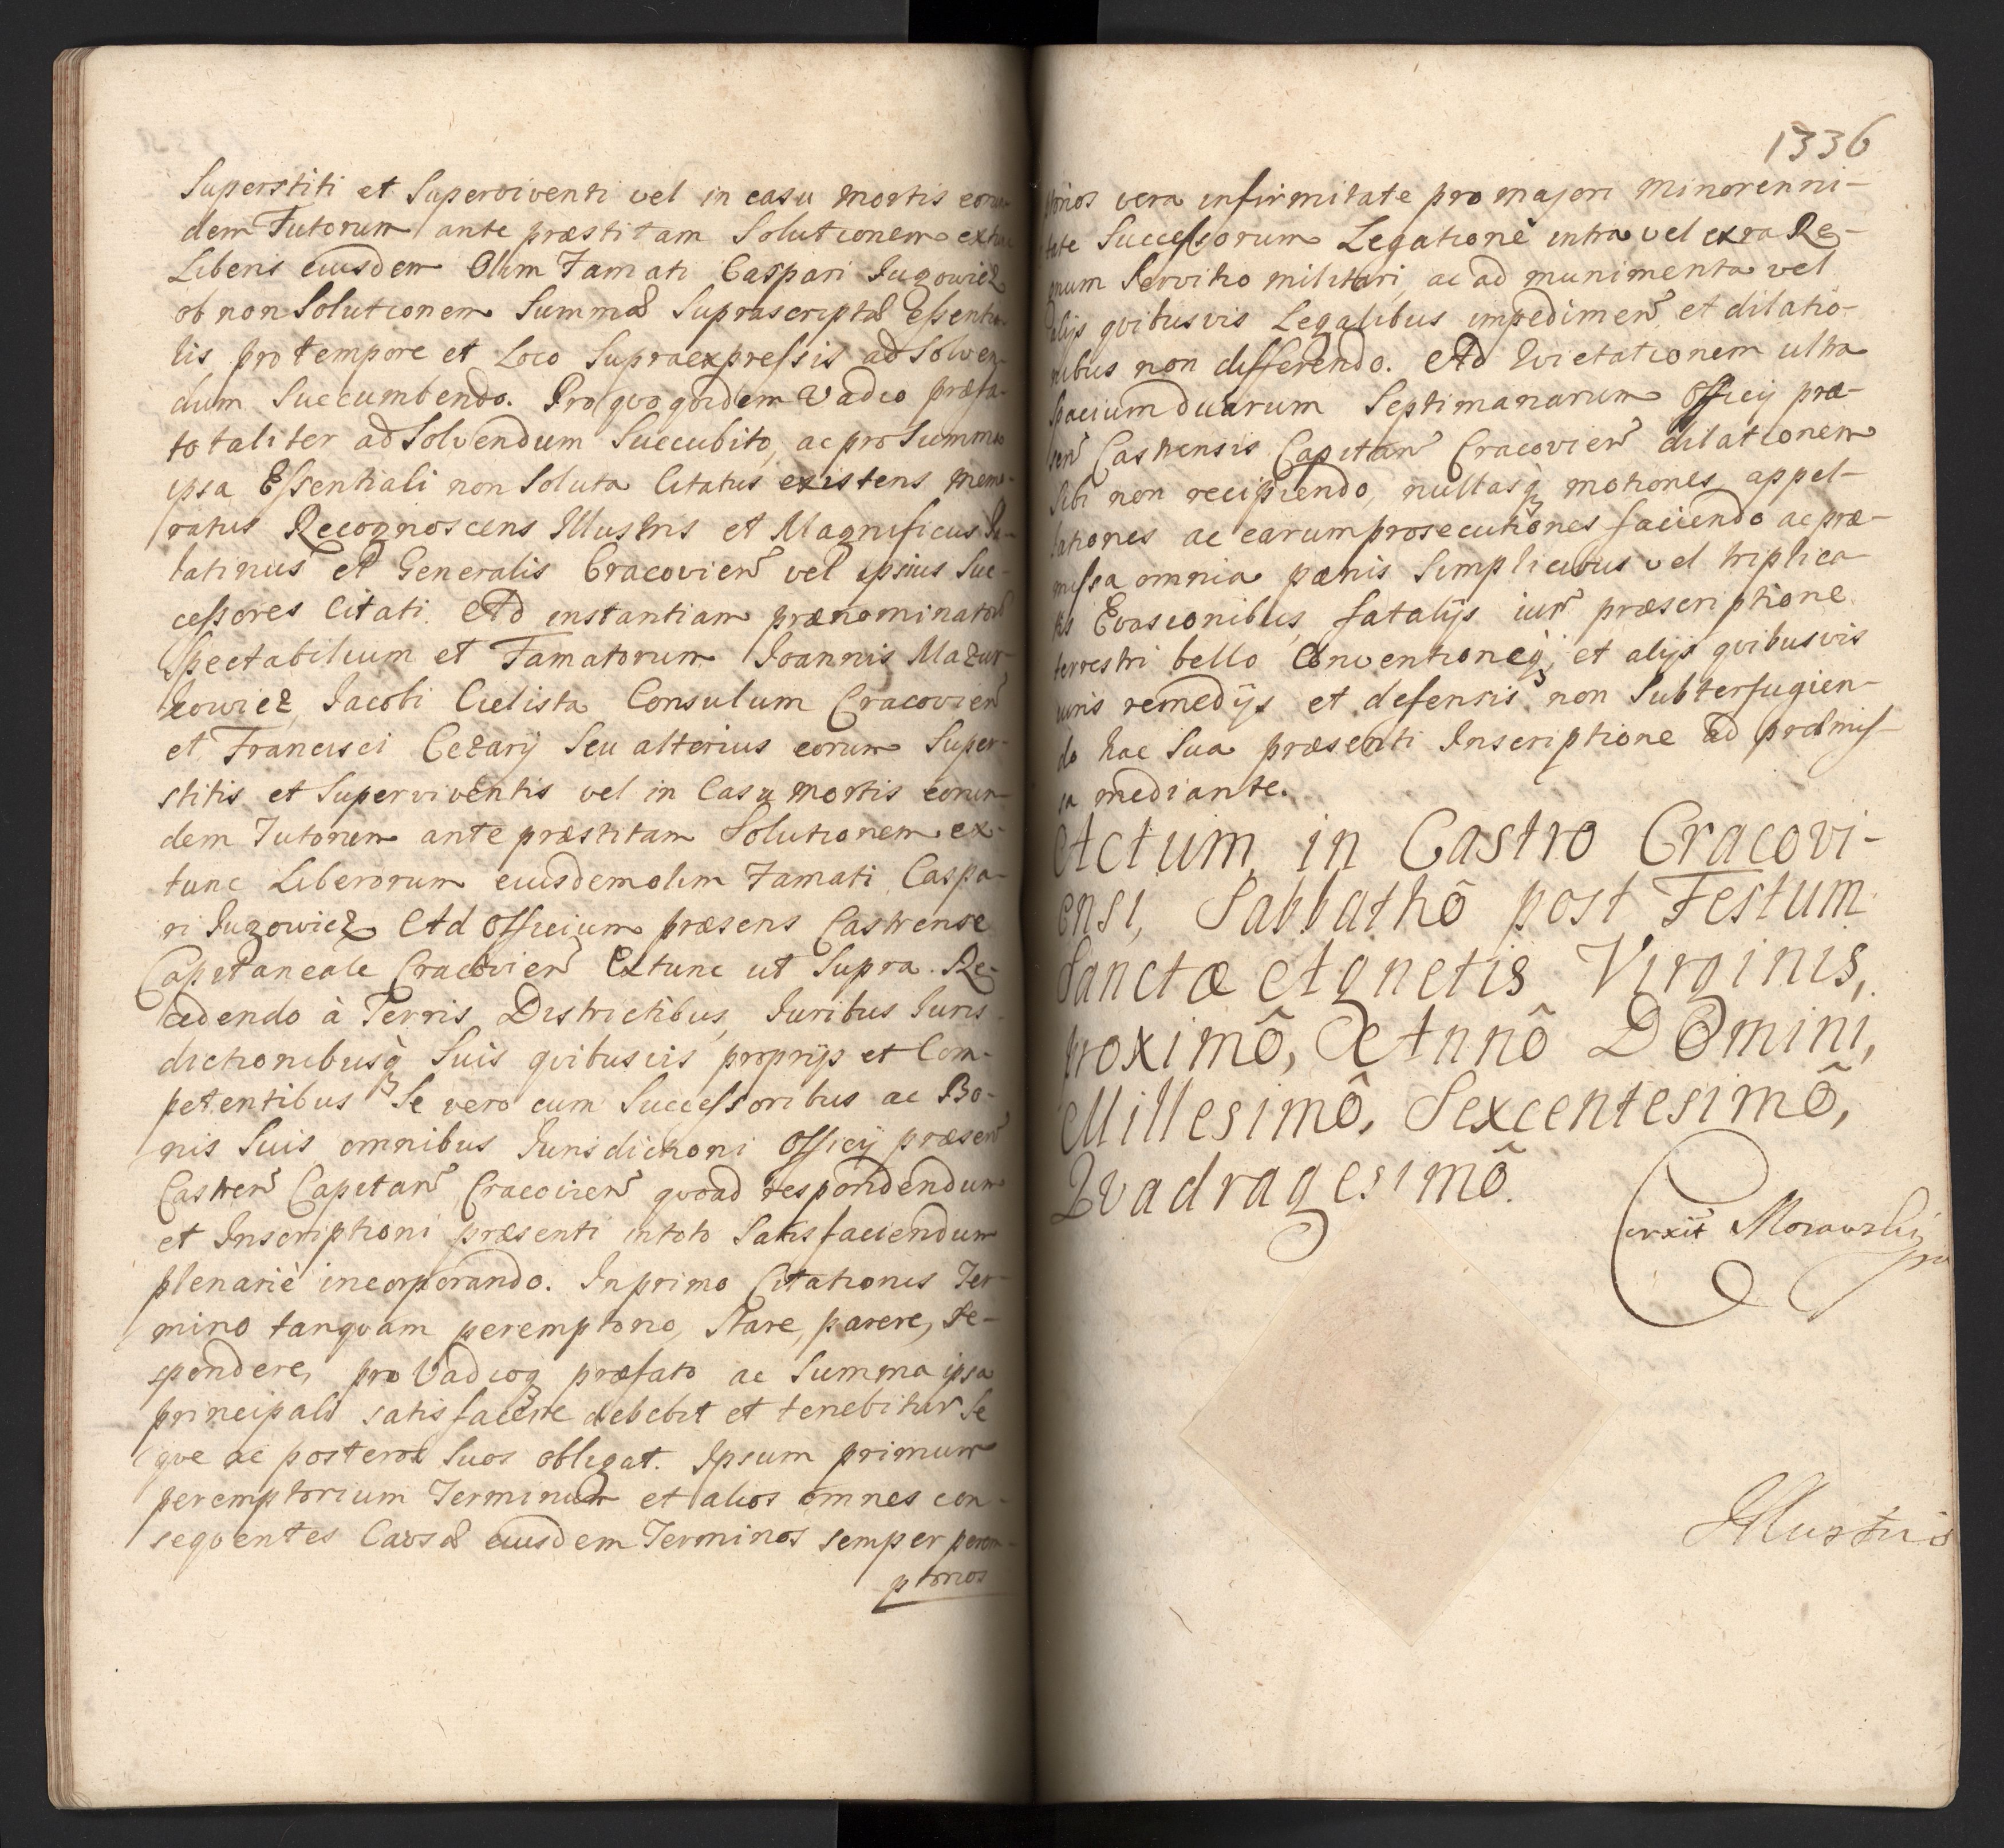 Superstiti et Superviventi vel in casu mortis eorun-
dem Tutorum ante præstitam Solutionem extunc
Liberis eiusdem Olim Famati Caspari Jugowicz
ob non Solutionem Summæ Suprascriptæ Essentia-
lis pro tempore et Loco Supraexpressis ad Solven-
dum Succumbendo. Pro quo quidem Vadio præfa-
to taliter ad Solvendum Succubito, ac pro Summa
ipsa Essentiali non Soluta Citatus existens memo-
ratus Recognoscens Illustris et Magnificus Pa-
latinus et Generalis Cracovien vel ipsius Suc-
cessores Citati. Ad instantiam prænominatorum
Spectabilium et Famatorum Joannis Mazur-
kowicz, Jacobi Cielista Consulum Cracovien
et Francisci Cezarij Seu alterius eorum Super-
stitis et Superviventis vel in Casu mortis eorun-
dem Tutorum ante præstitam Solutionem ex-
tunc Liberorum eiusdem olim Famati Caspa-
ri Jugowicz Ad Officium præsens Castrense
Capitaneale Cracovien Extunc ut Supra. Re-
cedendo à Terris Districtibus, Juribus Juris
dictionibusq3 Suis qvibusvis proprijs et Com-
petentibus Se vero cum Successoribus ac Bo-
nis Suis omnibus Jurisdictioni Officij præsen
Castren Capitan Cracovien qvoad respondendum
et Inscriptioni præsenti in toto Satisfaciendum
plenariè incorporando. In primo Citationis Ter-
mino tanqvam peremptorio, Stare, parere, re-
spondere, pro Vadioq3 præfato ac Summa ipsa
principali satisfacere debebit et tenebitur Se
qve ac posteros Suos obligat. Ipsum primum
peremptorium Terminum et alios omnes con-
seqventes Causæ eiusdem Terminos semper perem-
ptorios
1336
ptorios vera infirmitate pro majori minorenni-
tate Successorum Legatione intra vel exra Re-
gnum Servitio militari, ac ad munimenta vel
alijs qvibusvis Legalibus impedimen et dilatio-
nibus non differendo. Ad Evictationem ultra
Spacium duarum Septimanarum Officij præ-
sen Castrensis Capitan Cracovien dilationem
Sibi non recipiendo, nullasq3 motiones, appel-
lationes ac earum prosecutiones faciendo ac præ-
missa omnia pœnis Simplicibus vel triplica-
tis Evasionibus, fatalijs iurñ præscriptione
terrestri bello Conventioneq3, et alijs qvibusvis
iuris remedijs et defensis non Subterfugien-
do hac Sua præsenti Inscriptione ad præmis-
sa mediante.
Actum in Castro Cracovi-
ensi, Sabbathô post Festum
Sanctæ Agnetis Virginis,
proximô, Annô Domini,
Millesimô, Sexcentesimô,
Qvadragesimô.
Corxit Morawski
Illustris